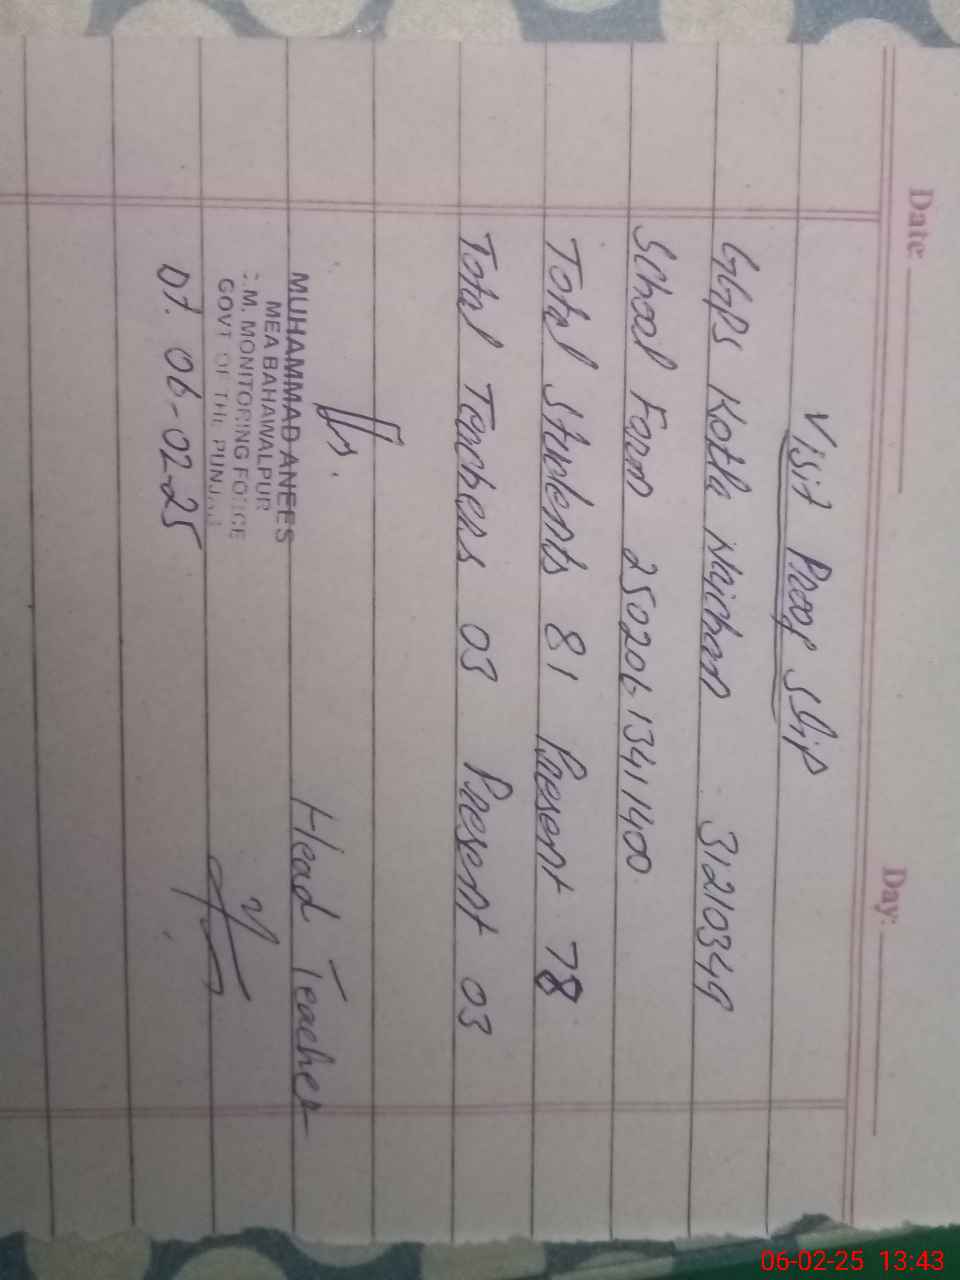 Date: Day:
Visit Proof Slip
GGPS Kotla Naichan 31210349
School Form 2502061341400
Total Students 81 Present 78
Total Teachers 03 Present 03
Head Teacher
MUHAMMAD ANEES
MEA BAHAWALPUR
C.M. MONITORING FORCE
GOVT OF THE PUNJAB
Dt. 06-02-25
06-02-25 13:43